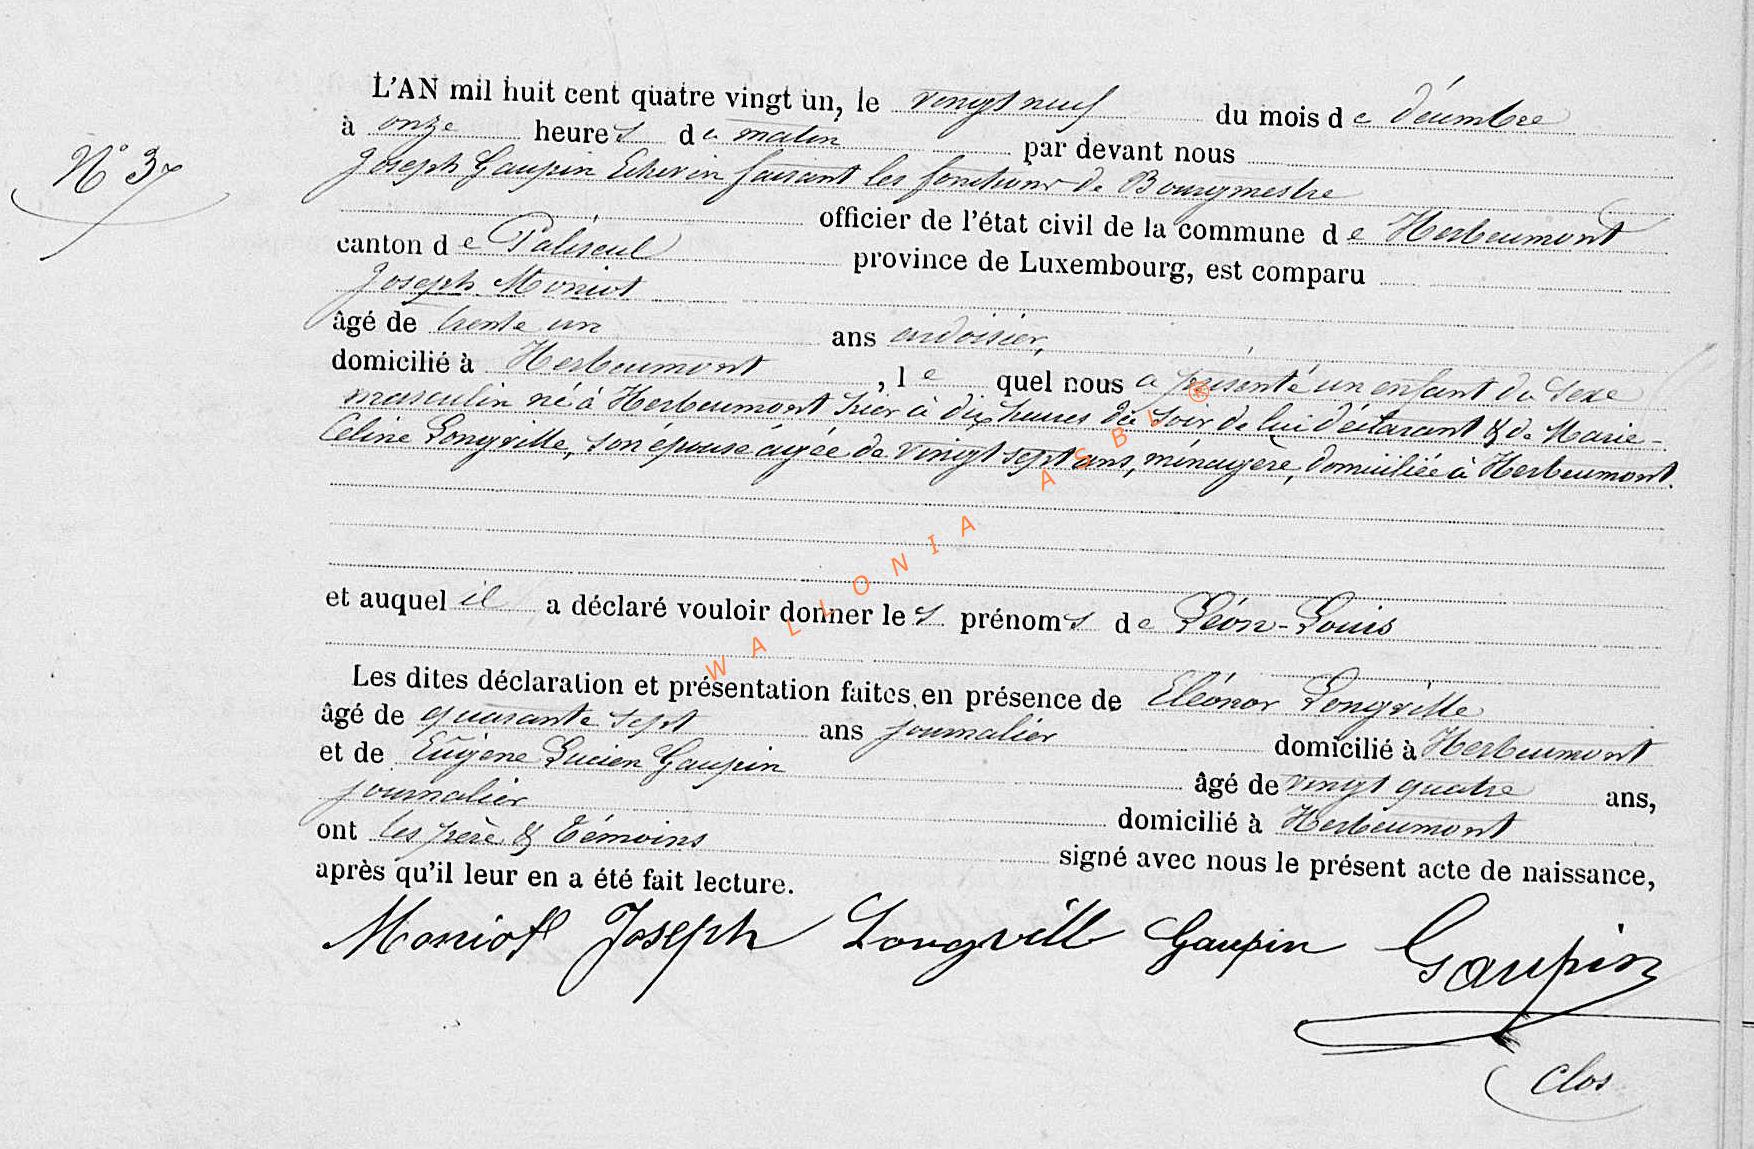 L'AN mil huit cent quatre vingt un, le vingt neuf du mois de décembre
à onze heures du matin par devant nous
N° 37
Joseph Gaupin Echevin faisant les fonctions de Bourgmestre
officier de l'état civil de la commune de Herbeumont
canton de Paliseul province de Luxembourg, est comparu
Joseph Moniot
âgé de trente un ans ardoisier,
domicilié à Herbeumont, le quel nous a présenté un enfant du sexe
masculin né à Herbeumont hier à dix heures du soir de lui déclarant & de Marie-
Céline Longville, son épouse âgée de vingt sept ans, ménagère, domiciliée à Herbeumont.
WALLONIA ASBL ®
et auquel il a déclaré vouloir donner les prénoms de Léon-Louis
Les dites déclaration et présentation faites en présence de Eléonor Longville
âgé de quarante sept ans journalier domicilié à Herbeumont
et de Eugène Lucien Gaupin âgé de vingt quatre ans,
journalier domicilié à Herbeumont
ont les père & témoins signé avec nous le présent acte de naissance,
après qu'il leur en a été fait lecture.
Moniot Joseph Longvill Gaupin Gaupin
Clos